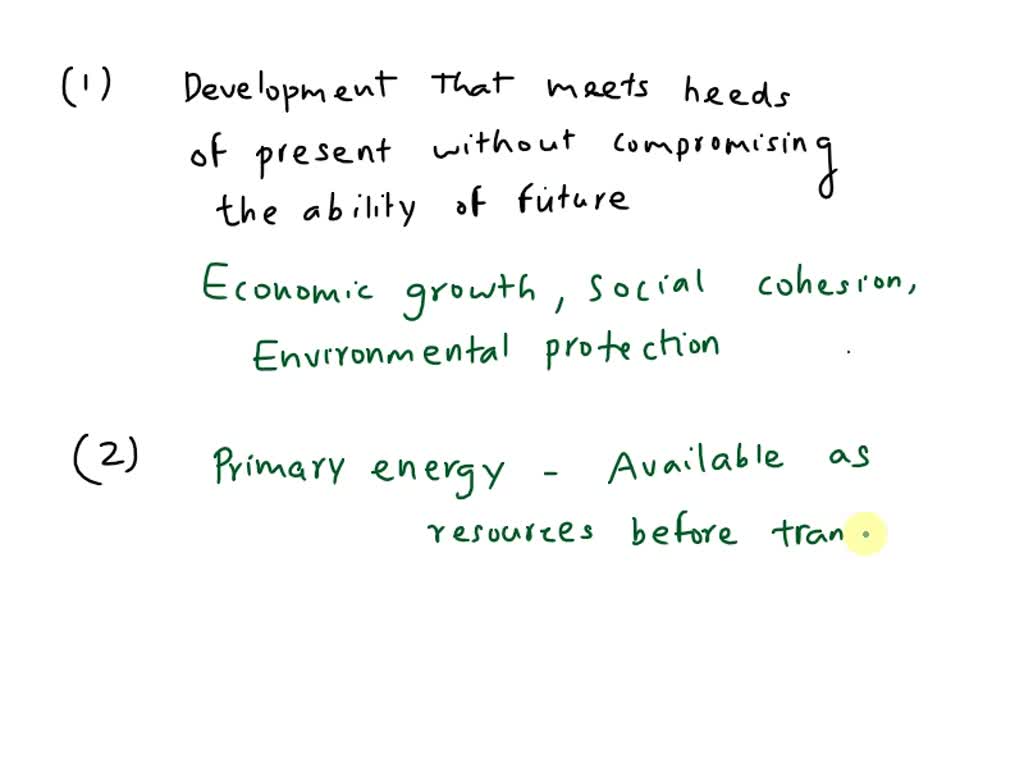 (1) Development that meets heeds
of present without compromising
the ability of future
Economic growth, social cohesion,
Environmental protection
(2) Primary energy - Available as
resources before tran